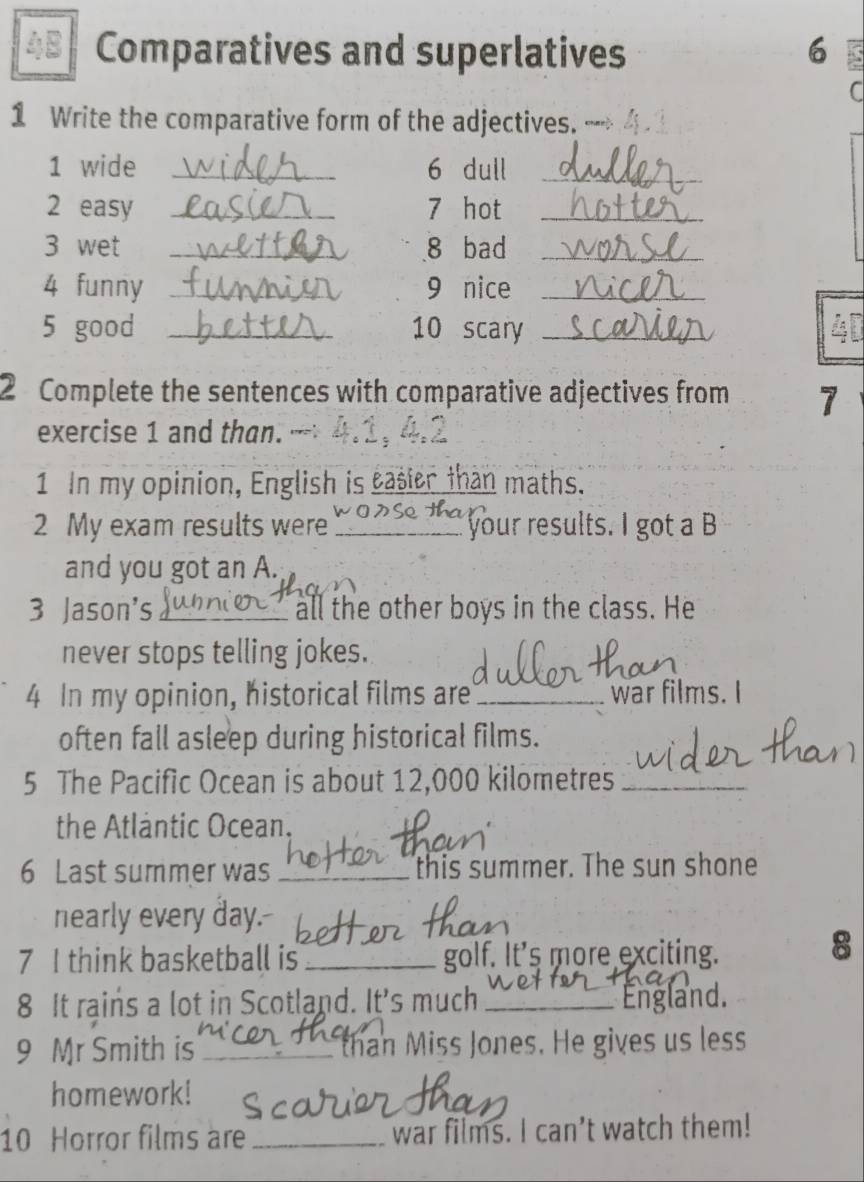 4B Comparatives and superlatives 6
1 Write the comparative form of the adjectives. → 4.1
1 wide wider 6 dull duller
2 easy easier 7 hot hotter
3 wet wetter 8 bad worse
4 funny funnier 9 nice nicer
5 good better 10 scary scarier
2 Complete the sentences with comparative adjectives from 7
exercise 1 and than. → 4.1, 4.2
1 In my opinion, English is easier than maths.
2 My exam results were worse than your results. I got a B
and you got an A.
3 Jason's funnier than all the other boys in the class. He
never stops telling jokes.
4 In my opinion, historical films are duller than war films. I
often fall asleep during historical films.
5 The Pacific Ocean is about 12,000 kilometres wider than
the Atlantic Ocean.
6 Last summer was hotter than this summer. The sun shone
nearly every day.
7 I think basketball is better than golf. It's more exciting. 8
8 It rains a lot in Scotland. It's much wetter than England.
9 Mr Smith is nicer than than Miss Jones. He gives us less
homework!
10 Horror films are scarier than war films. I can't watch them!